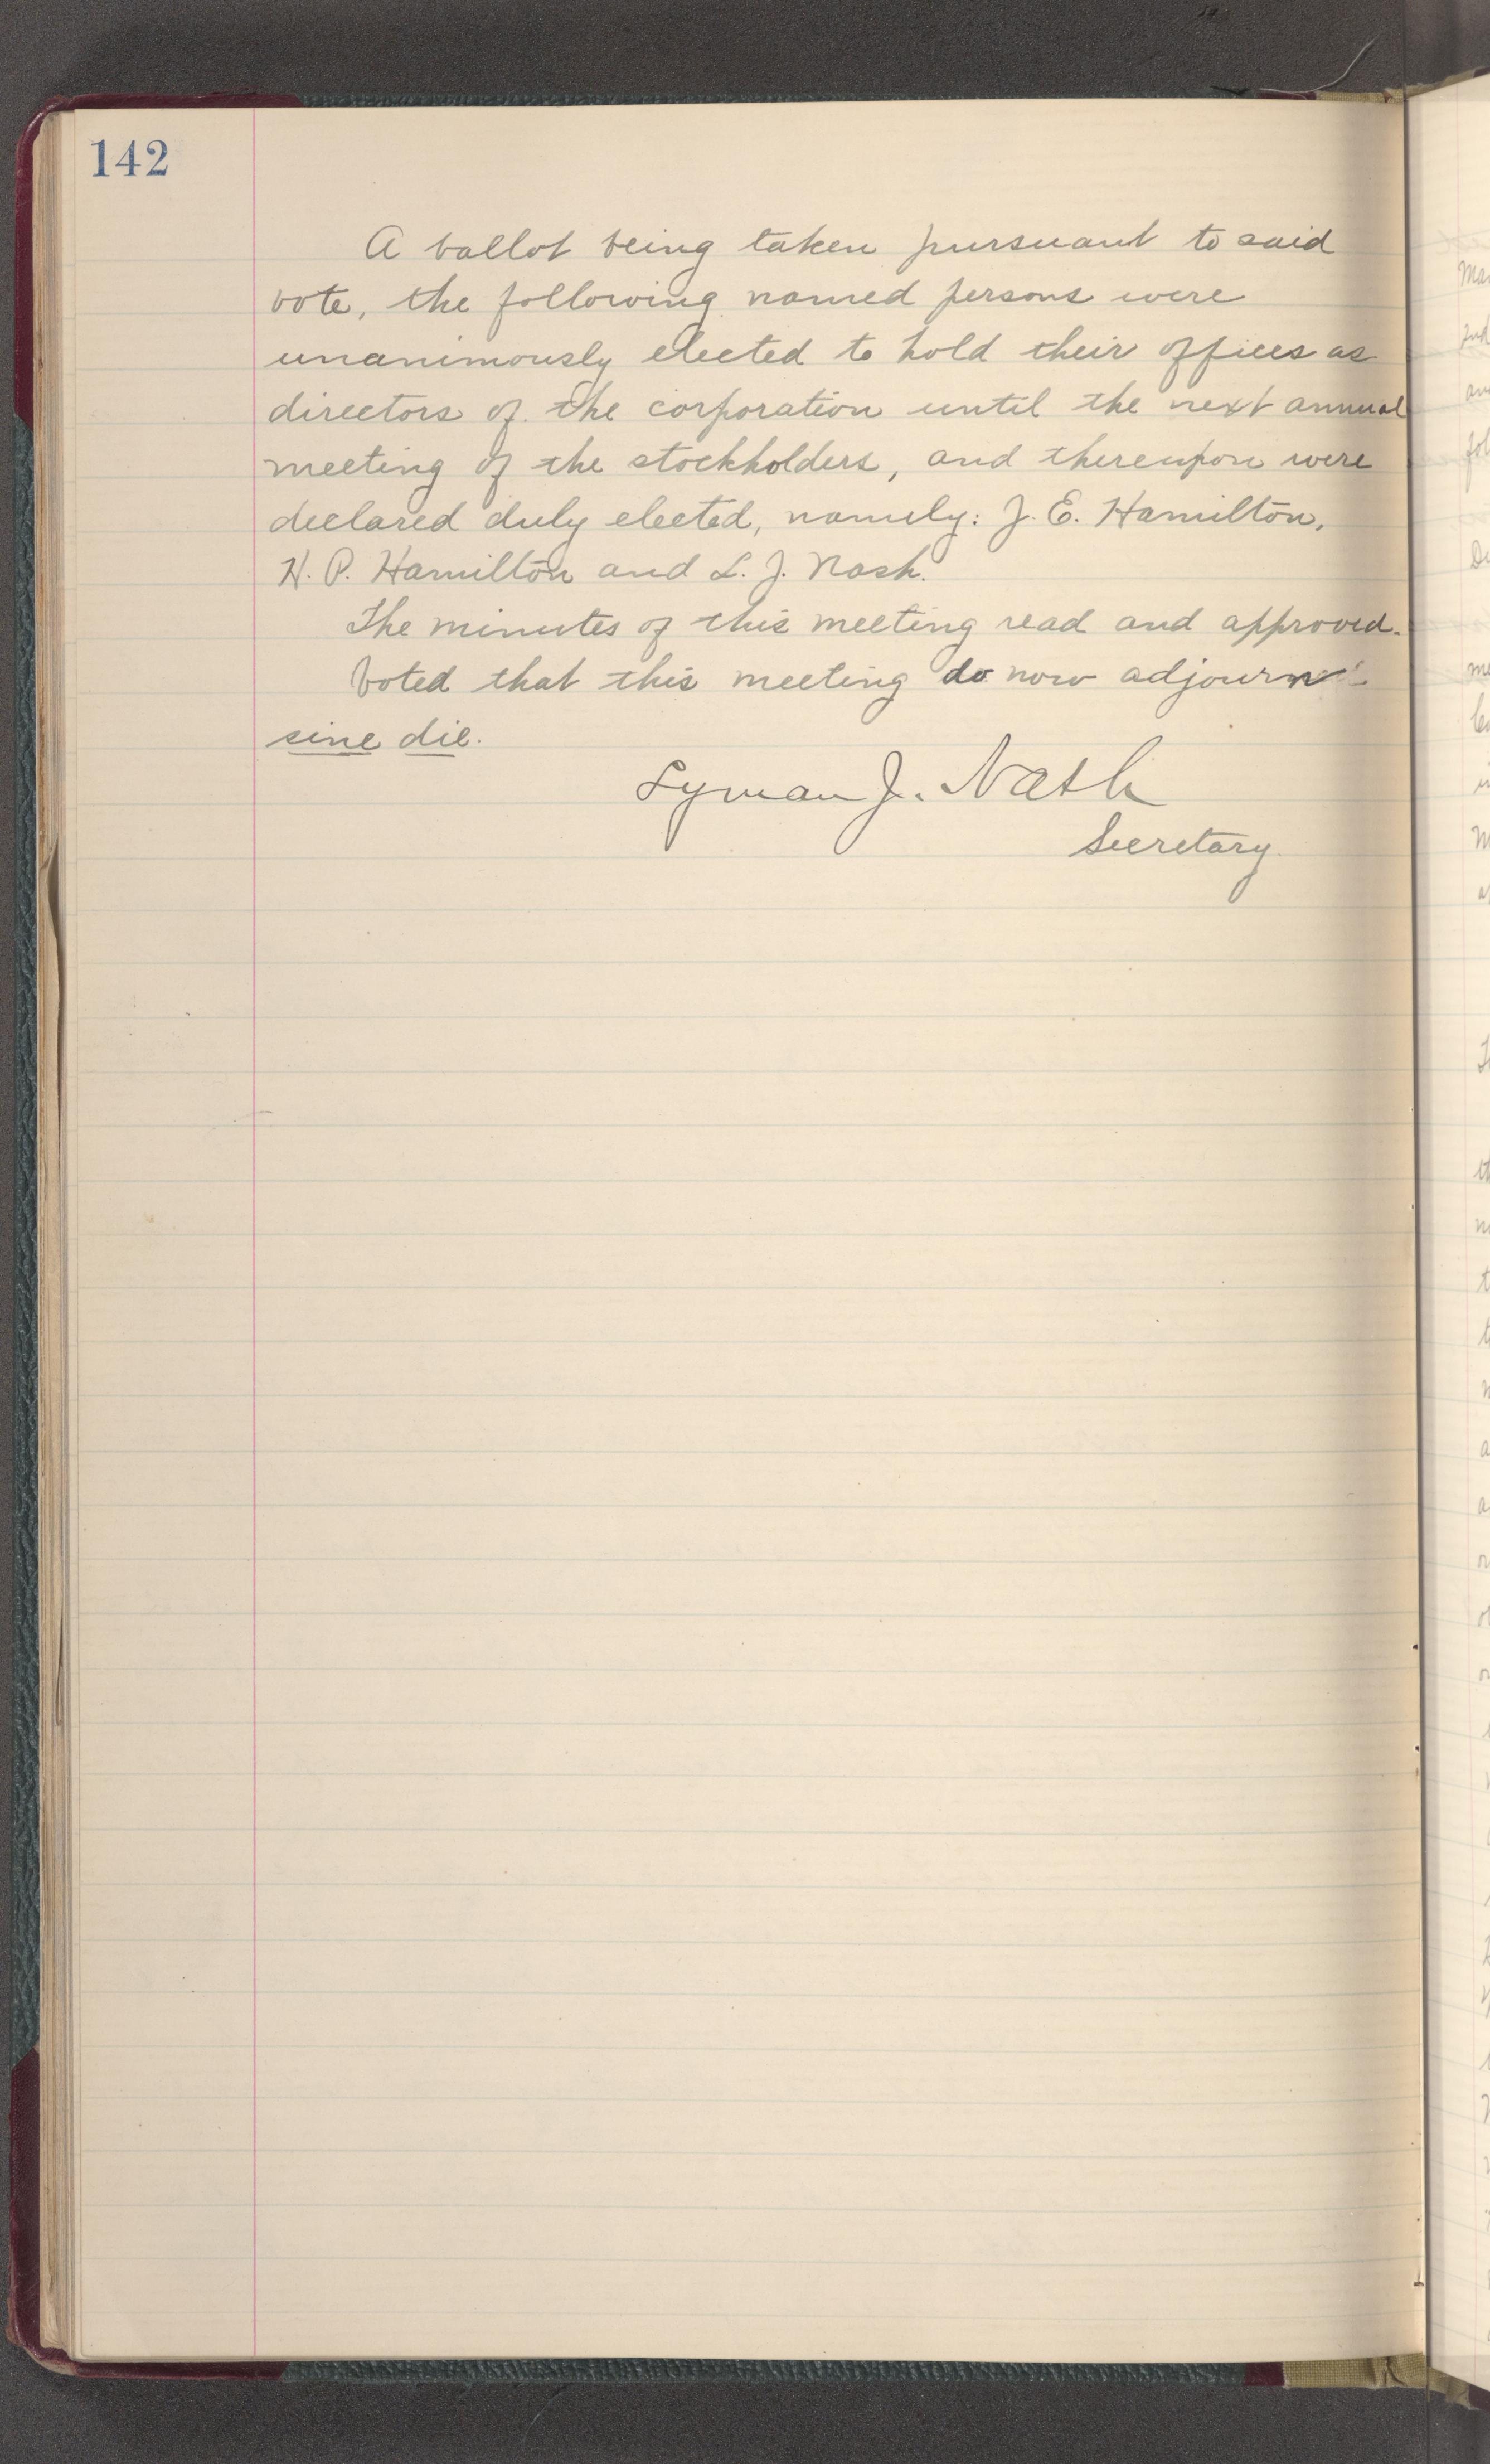 142
A ballot being taken pursuant to said
vote, the following named persons were
unanimously elected to hold their offices as
directors of the corporation until the next annual
meeting of the stockholders, and thereupon were
declared duly elected, namely: J. E. Hamilton,
H. P. Hamilton and L. J. Nash.
The minutes of this meeting read and approved.
Voted that this meeting do now adjourn
sine die.
Lyman J. Nash
Secretary